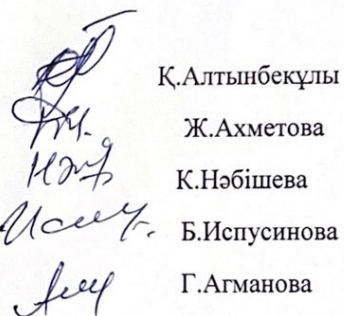 Қ.Алтынбекұлы
Ж.Ахметова
К.Нәбішева
Б.Испусинова
Г.Агманова